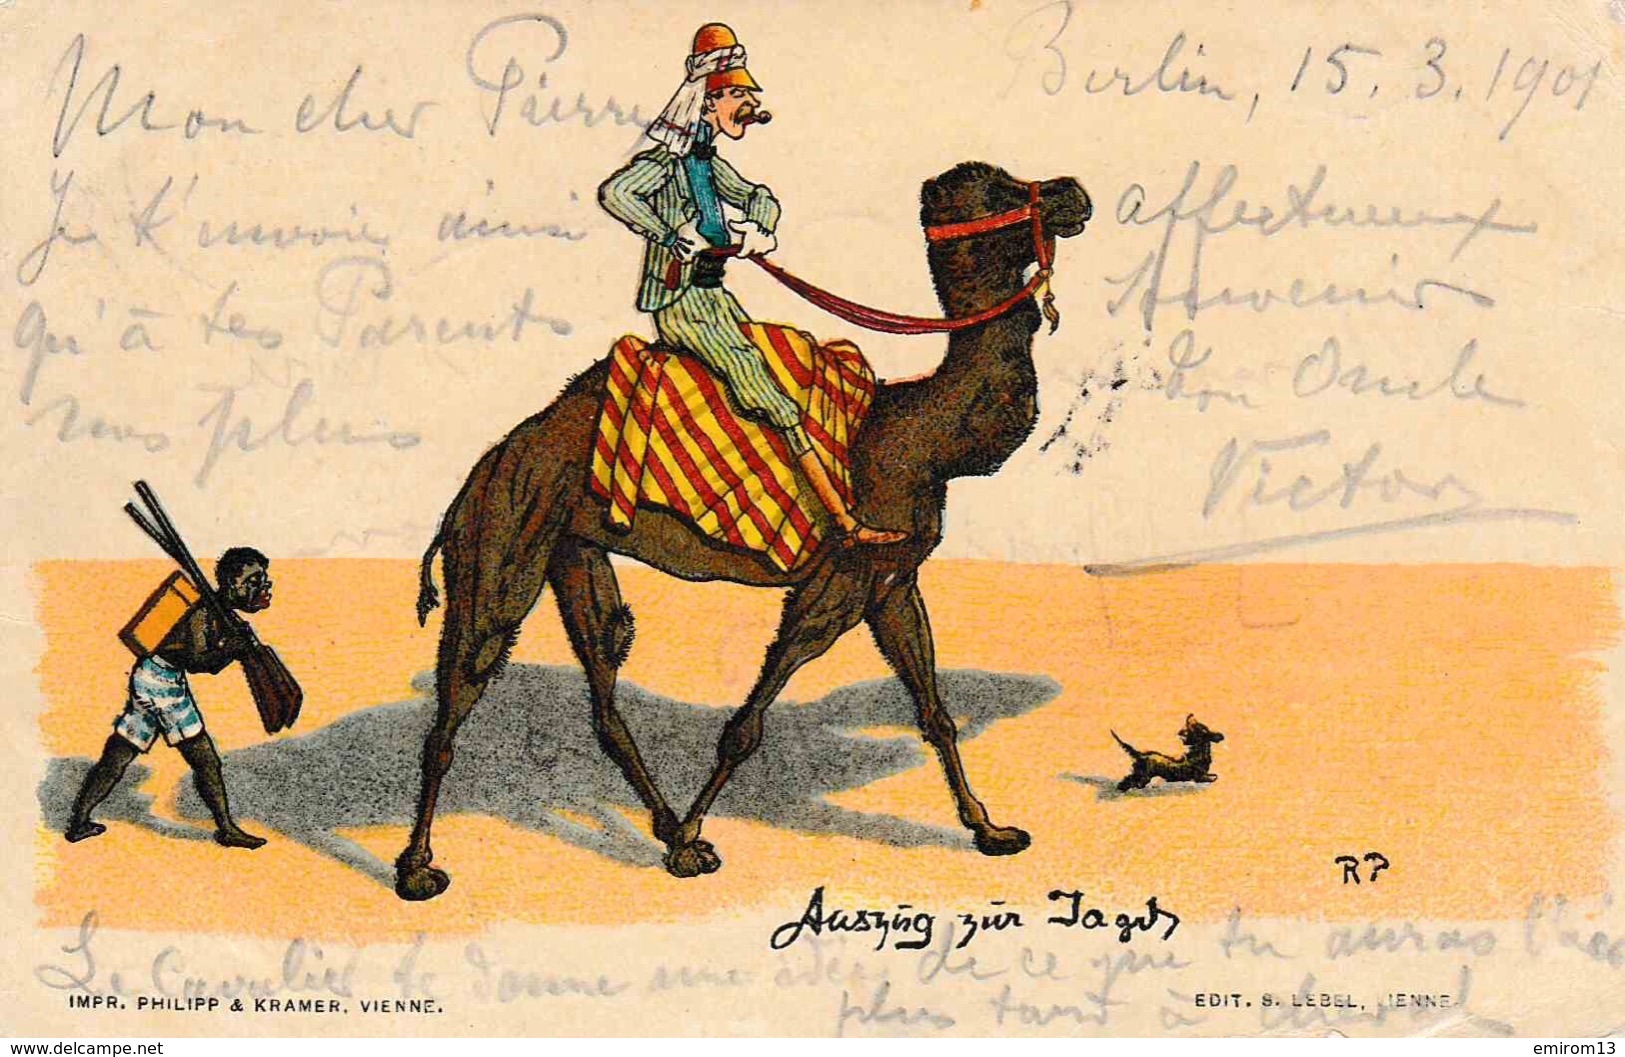 Berlin, 15. 3. 1901
Mon cher Pierre
Je t'envoie ainsi
qu'à tes Parents
nos plus
affectueux
Souvenirs
Ton Oncle
Victor
RP
Auszug zur Jagd
Le Cavalier te donne une idée de ce que tu auras l'
plus tard à cheval
IMPR. PHILIPP & KRAMER, VIENNE.
EDIT. S. LEBEL, VIENNE.
https://www.delcampe.net
emirom13